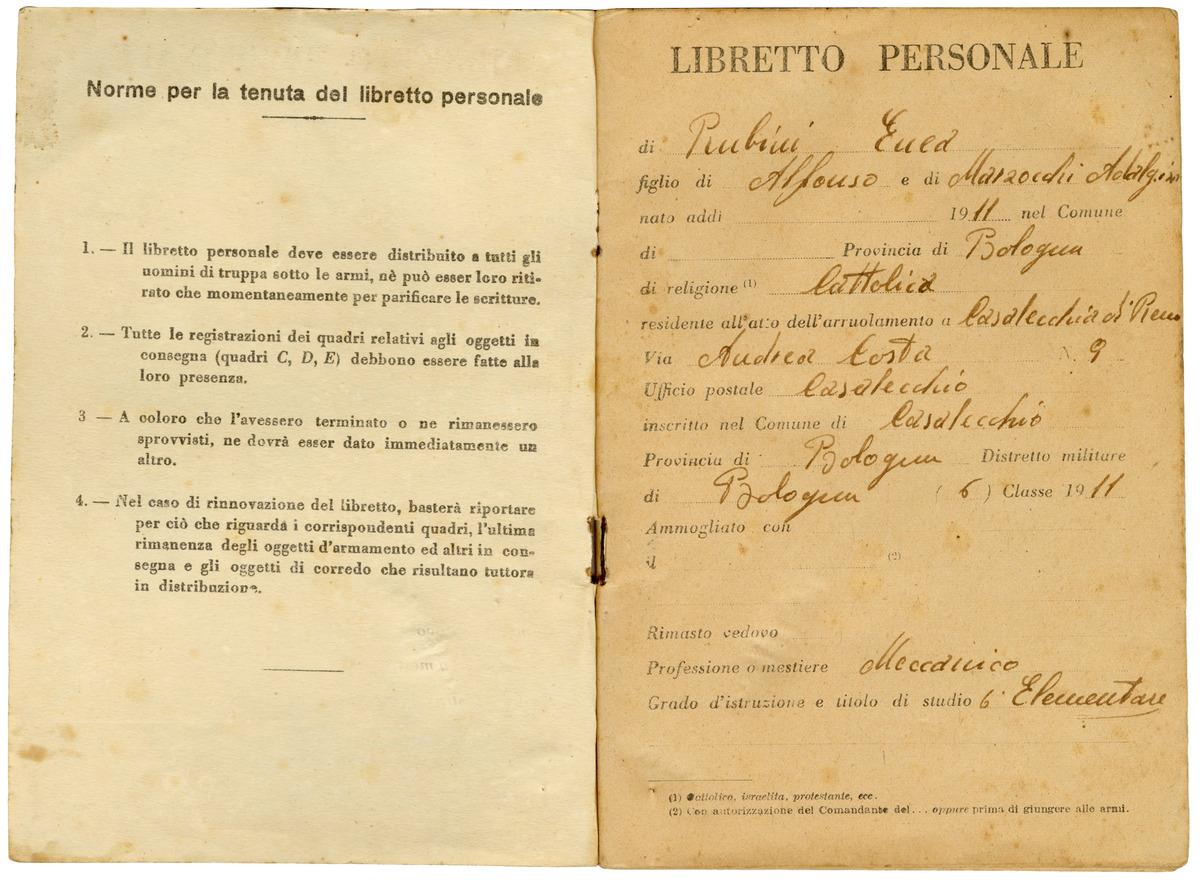 Norme per la tenuta del libretto personale
1. — Il libretto personale deve essere distribuito a tutti gli
uomini di truppa sotto le armi, nè può esser loro riti-
rato che momentaneamente per parificare le scritture.
2. — Tutte le registrazioni dei quadri relativi agli oggetti in
consegna (quadri C, D, E) debbono essere fatte alla
loro presenza.
3 — A coloro che l'avessero terminato o ne rimanessero
sprovvisti, ne dovrà esser dato immediatamente un
altro.
4. — Nel caso di rinnovazione del libretto, basterà riportare
per ciò che riguarda i corrispondenti quadri, l'ultima
rimanenza degli oggetti d'armamento ed altri in con-
segna e gli oggetti di corredo che risultano tuttora
in distribuzione.
LIBRETTO PERSONALE
di Rubini Enea
figlio di Alfonso e di Marzocchi
nato addì 1911 nel Comune
di Provincia di Bologna
di religione (1) Cattolica
residente all'atto dell'arruolamento a Casalecchio di Reno
Via Andrea Costa N. 9
Ufficio postale Casalecchio
inscritto nel Comune di Casalecchio
Provincia di Bologna Distretto militare
di Bologna (6) Classe 1911
Ammogliato con
il (2)
Rimasto vedovo
Professione o mestiere Meccanico
Grado d'istruzione e titolo di studio 6ª Elementare
(1) Cattolico, israelita, protestante, ecc.
(2) Con autorizzazione del Comandante del... oppure prima di giungere alle armi.